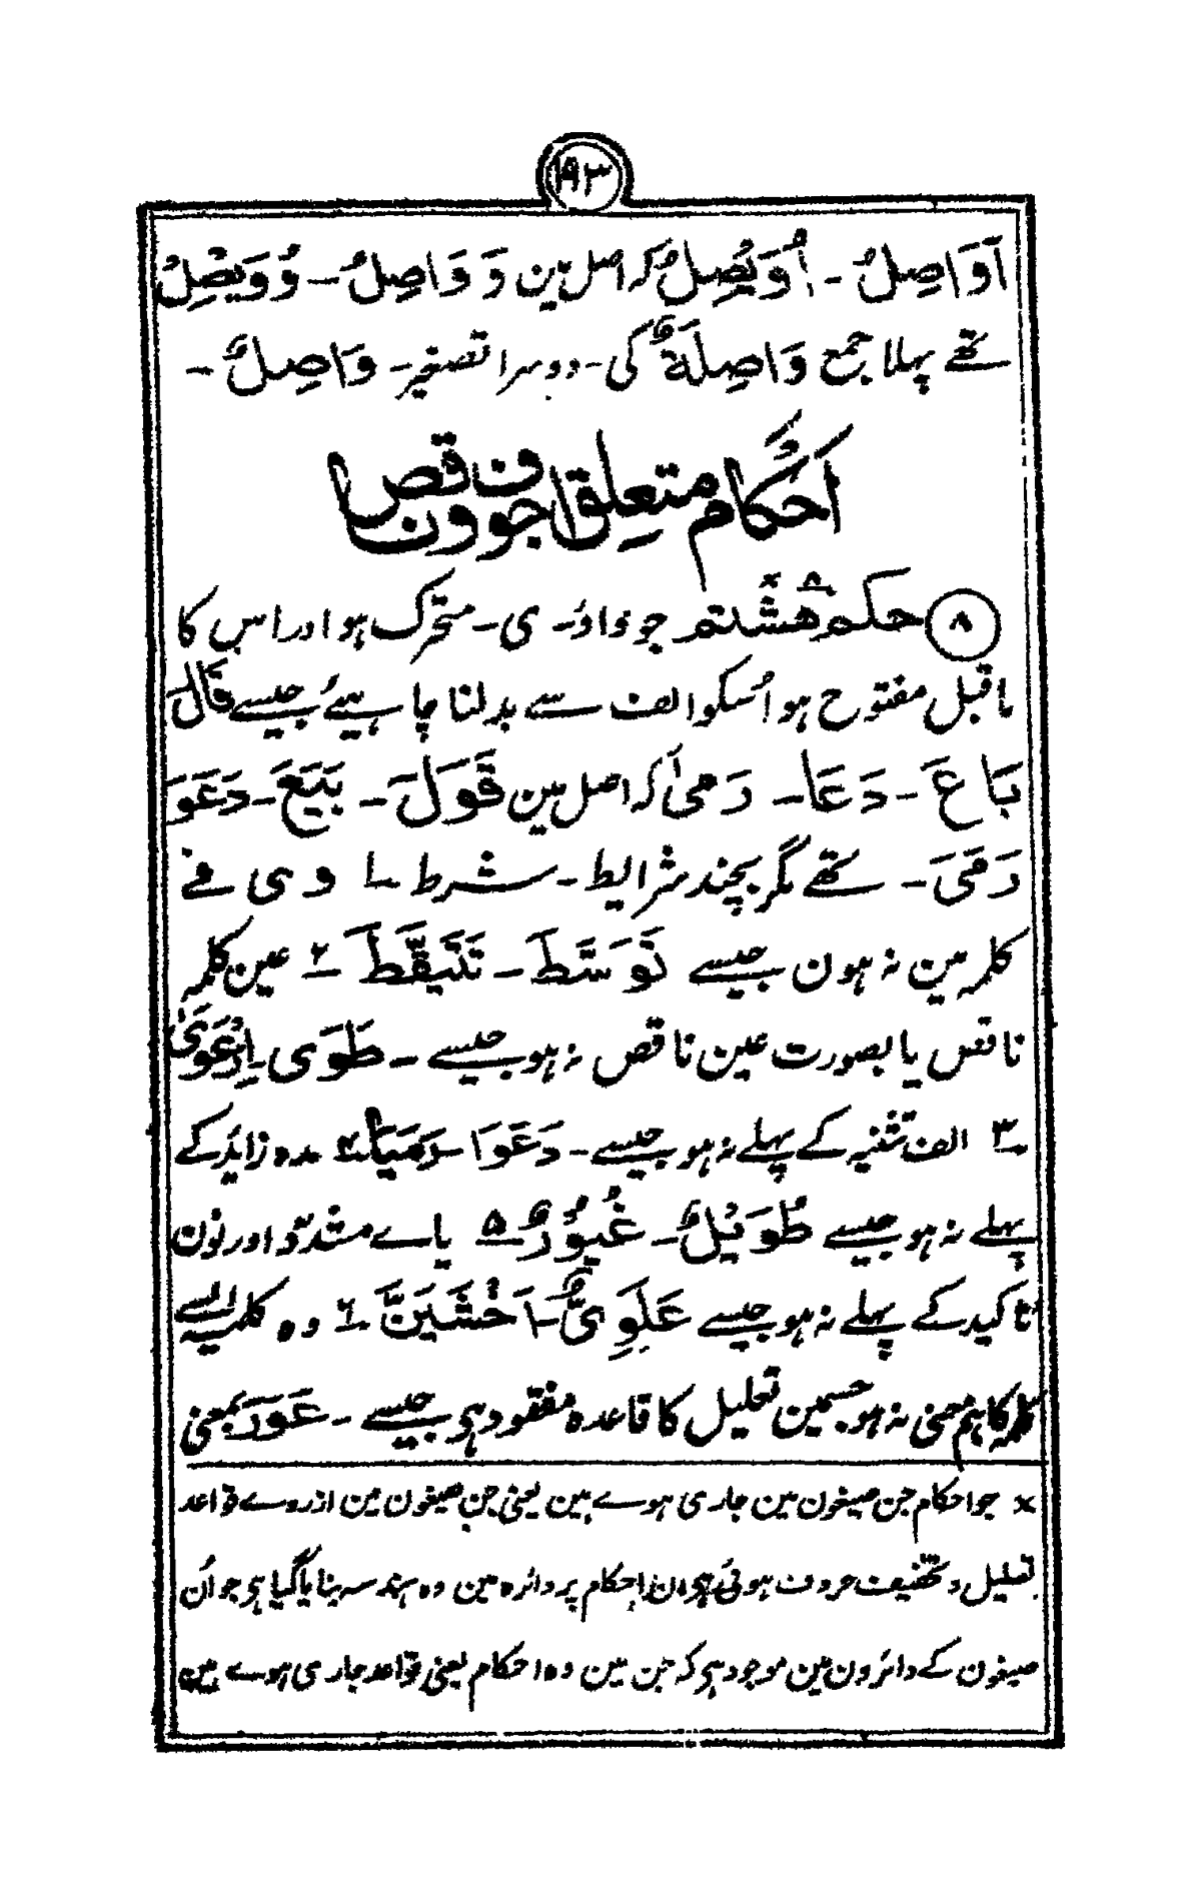 ۱۹۳
اَوَاصِلُ - اُوَیْصِلٌ کہ اصل مین وَ وَاصِلُ - وُوَیْصِلٌ
تھے پہلا جمع وَاصِلَةٌ کی - دوسرا تصغیر - وَاصِلٌ -
اَحکام متعلق اجوف و ناقص
۸ حکم هشتم × جو واؤ - ی - متحرک ہو اور اس کا
ماقبل مفتوح ہو اُسکو الف سے بدلنا چاہیئے جیسے قَالَ
بَاعَ - دَعَا - رَمیٰ کہ اصل مین قَوَلَ - بَیَعَ - دَعَوَ
رَمَیَ - تھے مگر بچند شرایط - شرط ۱ و ی فے
کلمہ مین نہ ہون جیسے تَوَسَّطَ - تَیَقَّظَ ۲ عین کلمہ
ناقص یا بصورت عین ناقص نہ ہو جیسے - طَوَی - اِرْعَوَیٰ
۳ الف تثنیہ کے پہلے نہ ہو جیسے - دَعَوَا - رَمَیَا ۴ مدہ زایٔد کے
پہلے نہ ہو جیسے طَوِیْلٌ - غَیُوْرٌ ۵ یاے مشدّد اور نون
تاکید کے پہلے نہ ہو جیسے عَلَوِیٌّ - اِخْشَیَنَّ ۶ وہ کلمہ ایسے
کلمہ کا ہم معنی نہ ہو جسمین تعلیل کا قاعدہ مفقود ہی جیسے - عَوِرَ بمعنی
× جو احکام جن صیغون مین جاری ہوے ہین یعنی جن صیغون مین ازروے قواعد
تعلیل و تخفیف حروف ہوئی ہی ان احکام پر دائرہ مین وہ ہندسہ بنایا گیا ہی جو اُن
صیغون کے دائرون مین موجود ہی کہ جن مین وہ احکام یعنی قواعد جاری ہوے ہین